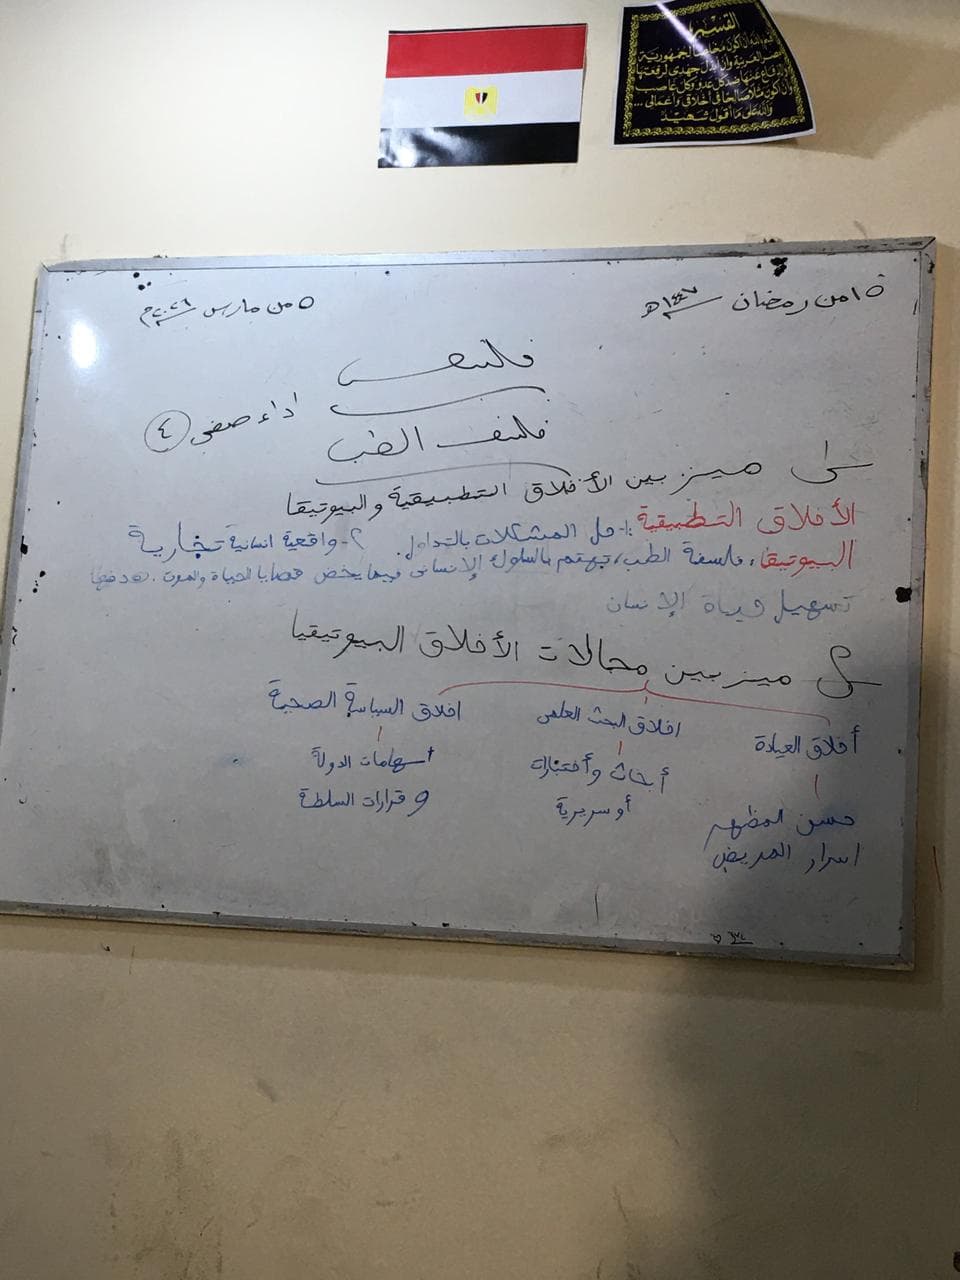 القسم
أقسم بالله أن أكون مخلصا لجمهورية
مصر العربية وأن أبذل جهدى لرفعتها
والدفاع عنها ضد كل عدو وكل غاصب
وأن أكون مثلا صالحا فى أخلاقى وأعمالى ...
والله على ما أقول شهيد
١٥ من رمضان ١٤٤٧هـ
٥ من مارس ٢٠٢٦م
فلسفة
فلسفة الطب
اداء صفى ٤
س١ ميز بين الأخلاق التطبيقية والبيوتيقا
الأخلاق التطبيقية :١- حل المشكلات بالتداول. ٢- واقعية انسانية تجارية
البيوتيقا: فلسفة الطب، تهتم بالسلوك الإنسانى فيما يخص قضايا الحياة والموت. هدفها
تسهيل حياة الإنسان
س٢ ميز بين مجالات الأخلاق البيوتيقيا
أخلاق العيادة
اخلاق البحث العلمى
اخلاق السياسة الصحية
حسن المظهر
اسرار المريض
أبحاث وأختبارات
أو سريرية
اسهامات الدولة
و قرارات السلطة